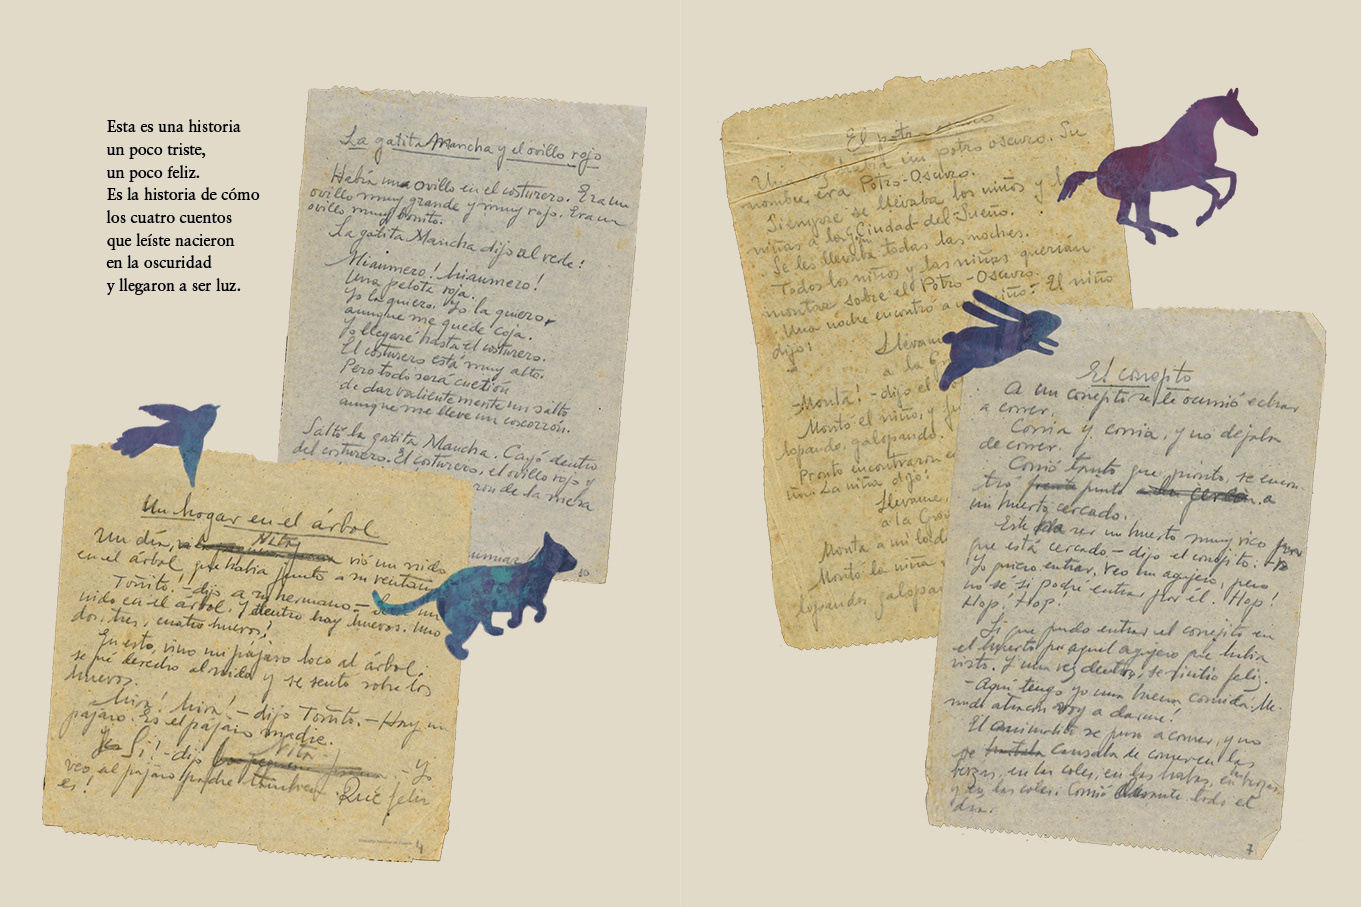 Esta es una historia
un poco triste,
un poco feliz.
Es la historia de cómo
los cuatro cuentos
que leíste nacieron
en la oscuridad
y llegaron a ser luz.
La gatita Mancha y el ovillo rojo
Había una ovillo en el costurero. Era un
ovillo muy grande y muy rojo. Era un
ovillo muy bonito.
La gatita Mancha dijo al verle:
Miaumero! Miaumero!
Una pelota roja.
Yo la quiero. Yo la quiero,
aunque me quede coja.
Yo llegaré hasta el costurero.
El costurero está muy alto.
Pero todo será cuestión
de dar valientemente un salto
aunque me lleve un coscorrón.
Saltó la gatita Mancha. Cayó dentro
del costurero. El costurero, el ovillo rojo y
de la mesa
10
Un hogar en el árbol
Un día, Nita vió un nido
en el árbol que había junto a su ventana
Toñito! - dijo a su hermano -
nido en el árbol. Y dentro hay huevos. Uno
dos, tres, cuatro huevos!
En esto, vino un pájaro loco al árbol,
se fué derecho al nido y se sentó sobre los
huevos.
Mira! Mira! - dijo Toñito. - Hay un
pájaro. Es el pájaro madre.
Si! - dijo Nita - Yo
veo al pájaro padre también. Qué feliz
es!
4
El potro oscuro
un potro oscuro. Su
nombre era Potro-Oscuro.
Siempre se llevaba los niños y las
niñas a la Ciudad-del-Sueño.
Se les llevaba todas las noches.
Todos los niños y las niñas querían
montar sobre el Potro-Oscuro.
Una noche encontró a un niño. El niño
dijo:
Llévame
a la
-Monta! - dijo el
Montó el niño, y
lopando, galopando.
Pronto encontraron
La niña dijo:
Llévame,
a la
Monta a mi lado
Montó la niña
El conejito
A un conejito se le ocurrió echar
a correr.
Corría y corría, y no dejaba
de correr.
Corrió tanto que pronto, se encon-
tró frente junto a
un huerto cercado.
Este ser un huerto muy rico
que está cercado - dijo el conejito. - Yo
Yo quiero entrar, veo un agujero, pero
no sé si podré entrar por él. Hop!
Hop! Hop!
Sí que pudo entrar el conejito en
el huerto por aquel agujero que había
visto. Y una vez dentro, se sintió feliz.
- Aquí tengo yo una buena comida. Me-
nudo atracón voy a darme!
El animalito se puso a comer, y no
se cansaba de comer en las
berzas, en las coles, en las habas,
y en las coles. Comió durante todo el
día.
7